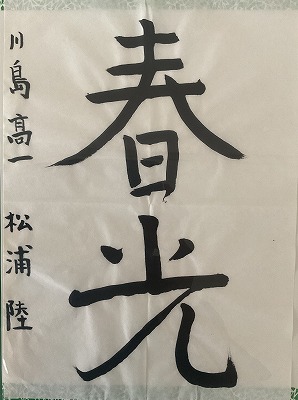 春光
川島高一 松浦陸